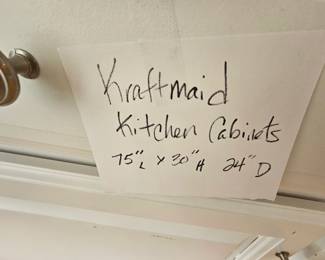 Kraftmaid
Kitchen Cabinets
75"L x 30"H 24"D